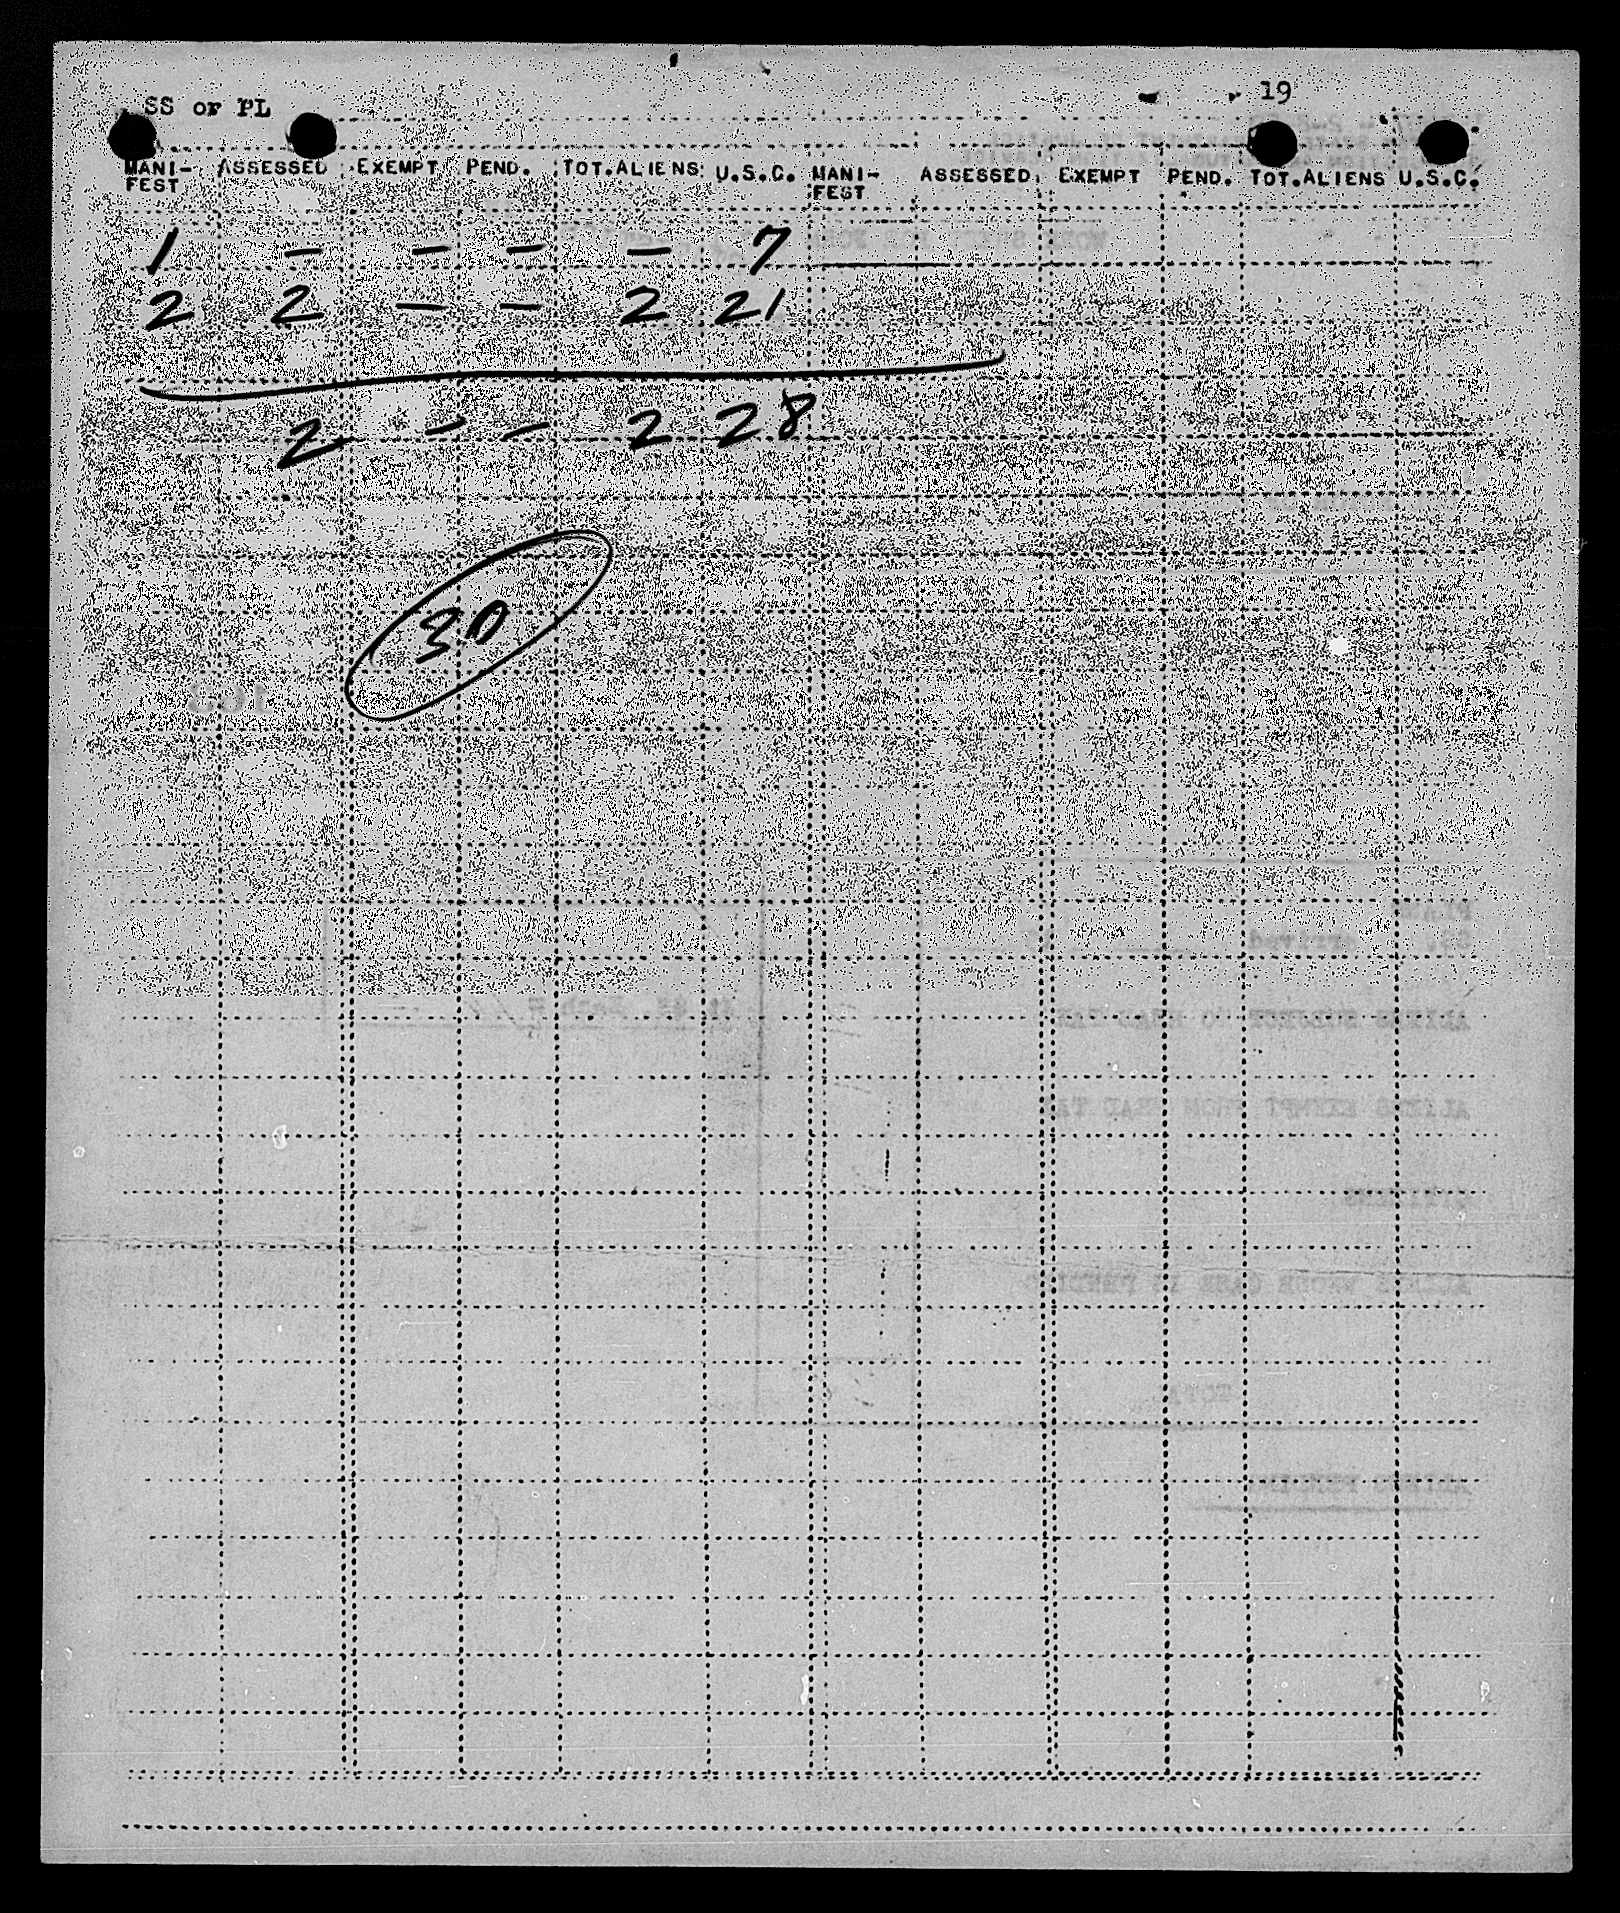 SS or PL 19
MANI-FEST ASSESSED EXEMPT PEND. TOT.ALIENS U.S.C. MANI-FEST ASSESSED EXEMPT PEND. TOT.ALIENS U.S.C.
1 — — — — 7
2 2 — — 2 21
2 — — 2 28
30